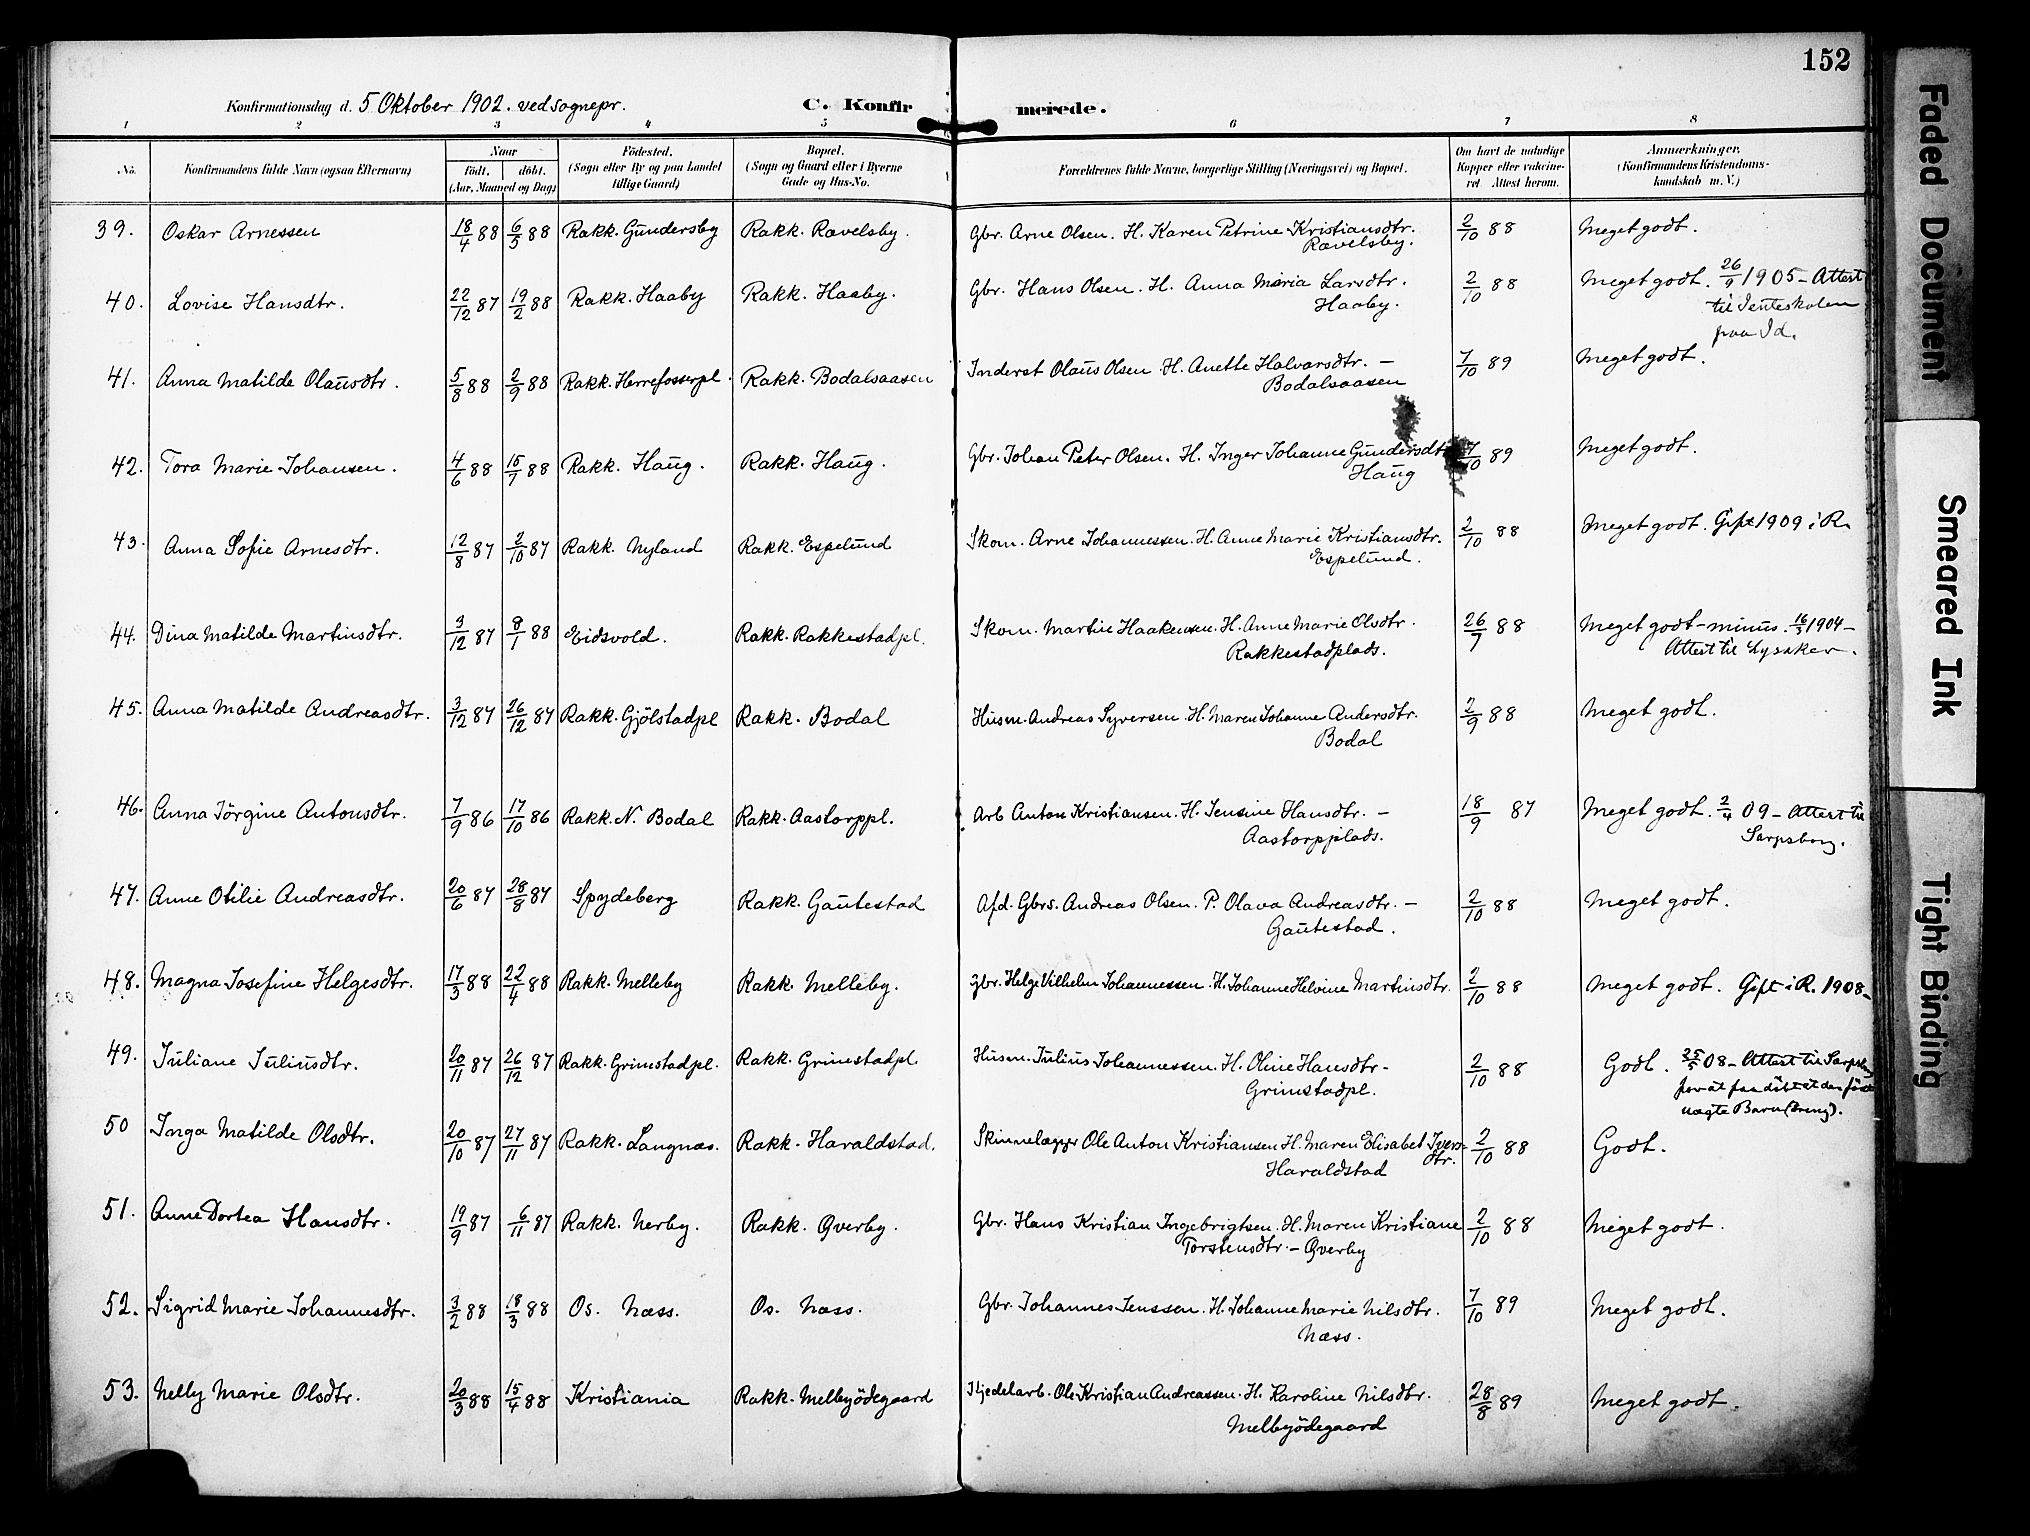 152
Konfirmationsdag d. 5 Oktober 1902. ved sognepr. C. Konfirmerede.
1 2 3 4 5 6 7 8
No. Konfirmandens fulde Navn (ogsaa Efternavn) Naar Født, døbt. (Aar, Maaned og Dag) Fødested. (Sogn eller By og paa Landet tillige Gaard) Bopæl. (Sogn og Gaard eller i Byerne Gade og Hus-No. Forældrenes fulde Navne, borgerlige Stilling (Næringsvei) og Bopæl. Om havt de naturlige Kopper eller vakcineret. Attest herom. Anmærkninger. (Konfirmandens Kristendomskundskab m. V.)
39. Oskar Arnessen 18/4 88 6/5 88 Rakk. Gundersby Rakk. Ravelsby. Gbr. Arne Olsen. H. Karen Petrine Kristiansdtr. 2/10 88 Meget godt.
Ravelsby.
40. Lovise Hansdtr. 22/12 87 19/2 88 Rakk. Haaby Rakk. Haaby. Gbr. Hans Olsen. H. Anna Maria Larsdtr. 2/10 88 Meget godt. 26/9 1905 - Attest
Haaby. til Jenteskolen
paa Id.
41. Anna Matilde Olausdtr. 5/8 88 2/9 88 Rakk. Herrefosserpl. Rakk. Bodalsaasen Inderst Olaus Olsen. H. Anette Halvorsdtr. - 7/10 89 Meget godt.
Bodalsaasen
42. Tora Marie Johansen. 4/6 88 15/7 88 Rakk. Haug. Rakk. Haug. Gbr. Johan Peter Olsen. H. Inger Johanne Gundersdtr. 7/10 89 Meget godt.
Haug
43. Anna Sofie Arnesdtr. 12/8 87 2/10 87 Rakk. Nyland Rakk. Espelund Skom. Arne Johannessen. H. Anne Marie Kristiansdtr. 2/10 88 Meget godt. Gift 1909 i R.
Espelund.
44. Dina Matilde Martinsdtr. 3/12 87 8/1 88 Eidsvold. Rakk. Rakkestadpl. Skom. Martin Haakensen. H. Anne Marie Olsdtr. 26/7 88 Meget godt - minus. 16/3 1904 -
Rakkestadplads. Attest til Lysaker.
45. Anna Matilde Andreasdtr. 3/12 87 26/12 87 Rakk. Gjölstadpl Rakk. Bodal Husm. Andreas Syversen. H. Maren Johanne Andersdtr. 2/9 88 Meget godt.
Bodal
46. Anna Jörgine Antonsdtr. 7/9 86 17/10 86 Rakk. N. Bodal Rakk. Aastorppl. Arb Anton Kristiansen. H. Jensine Hansdtr. - 18/9 87 Meget godt. 2/4 09 - Attest til
Aastorpplads. Sarpsborg.
47. Anne Otilie Andreasdtr. 20/6 87 28/8 87 Spydeberg Rakk. Gautestad Afd. Gbrs. Andreas Olsen. P. Olava Andreasdtr. - 2/10 88 Meget godt.
Gautestad.
48. Magna Josefine Helgesdtr. 17/3 88 22/4 88 Rakk. Melleby Rakk. Melleby. Gbr. Helge Vilhelm Johannessen. H. Johanne Helvine Martinsdtr. 2/10 88 Meget godt. Gift i R. 1908 -
49. Juliane Juliusdtr. 20/11 87 26/12 87 Rakk. Grimstadpl. Rakk. Grimstadpl. Husm. Julius Johannessen. H. Oline Hansdtr - 2/10 88 Godt. 25/5 08 - Attest til Sarpsborg
Grimstadpl. for at faa döbt et der født
uægte Barn (Dreng).
50 Inga Matilde Olsdtr. 20/10 87 27/11 87 Rakk. Langnæs. Rakk. Haraldstad. Skinnelægger Ole Anton Kristiansen H. Maren Elisabet Ivers- 2/10 88 Godt.
dtr.
Haraldstad
51. Anne Dortea Hansdtr. 19/9 87 6/11 87 Rakk. Nerby. Rakk. Gverby. Gbr. Hans Kristian Ingebrigtsen. H. Maren Kristiane 2/10 88 Meget godt.
Torstensdtr. - Gverby
52. Sigrid Marie Johannesdtr. 3/2 88 18/3 88 Os. Næss. Os. Næss. Gbr. Johannes Jenssen. H. Johanne Marie Nilsdtr. 7/10 89 Meget godt.
Næss.
53. Nelly Marie Olsdtr. 20/3 88 15/4 88 Kristiania Rakk. Melbyödegaard Kjedelarb. Ole Kristian Andreassen. H. Karoline Nilsdtr. 28/8 89 Meget godt.
Melbyödegaard
Faded Document
Smeared Ink
Tight Binding